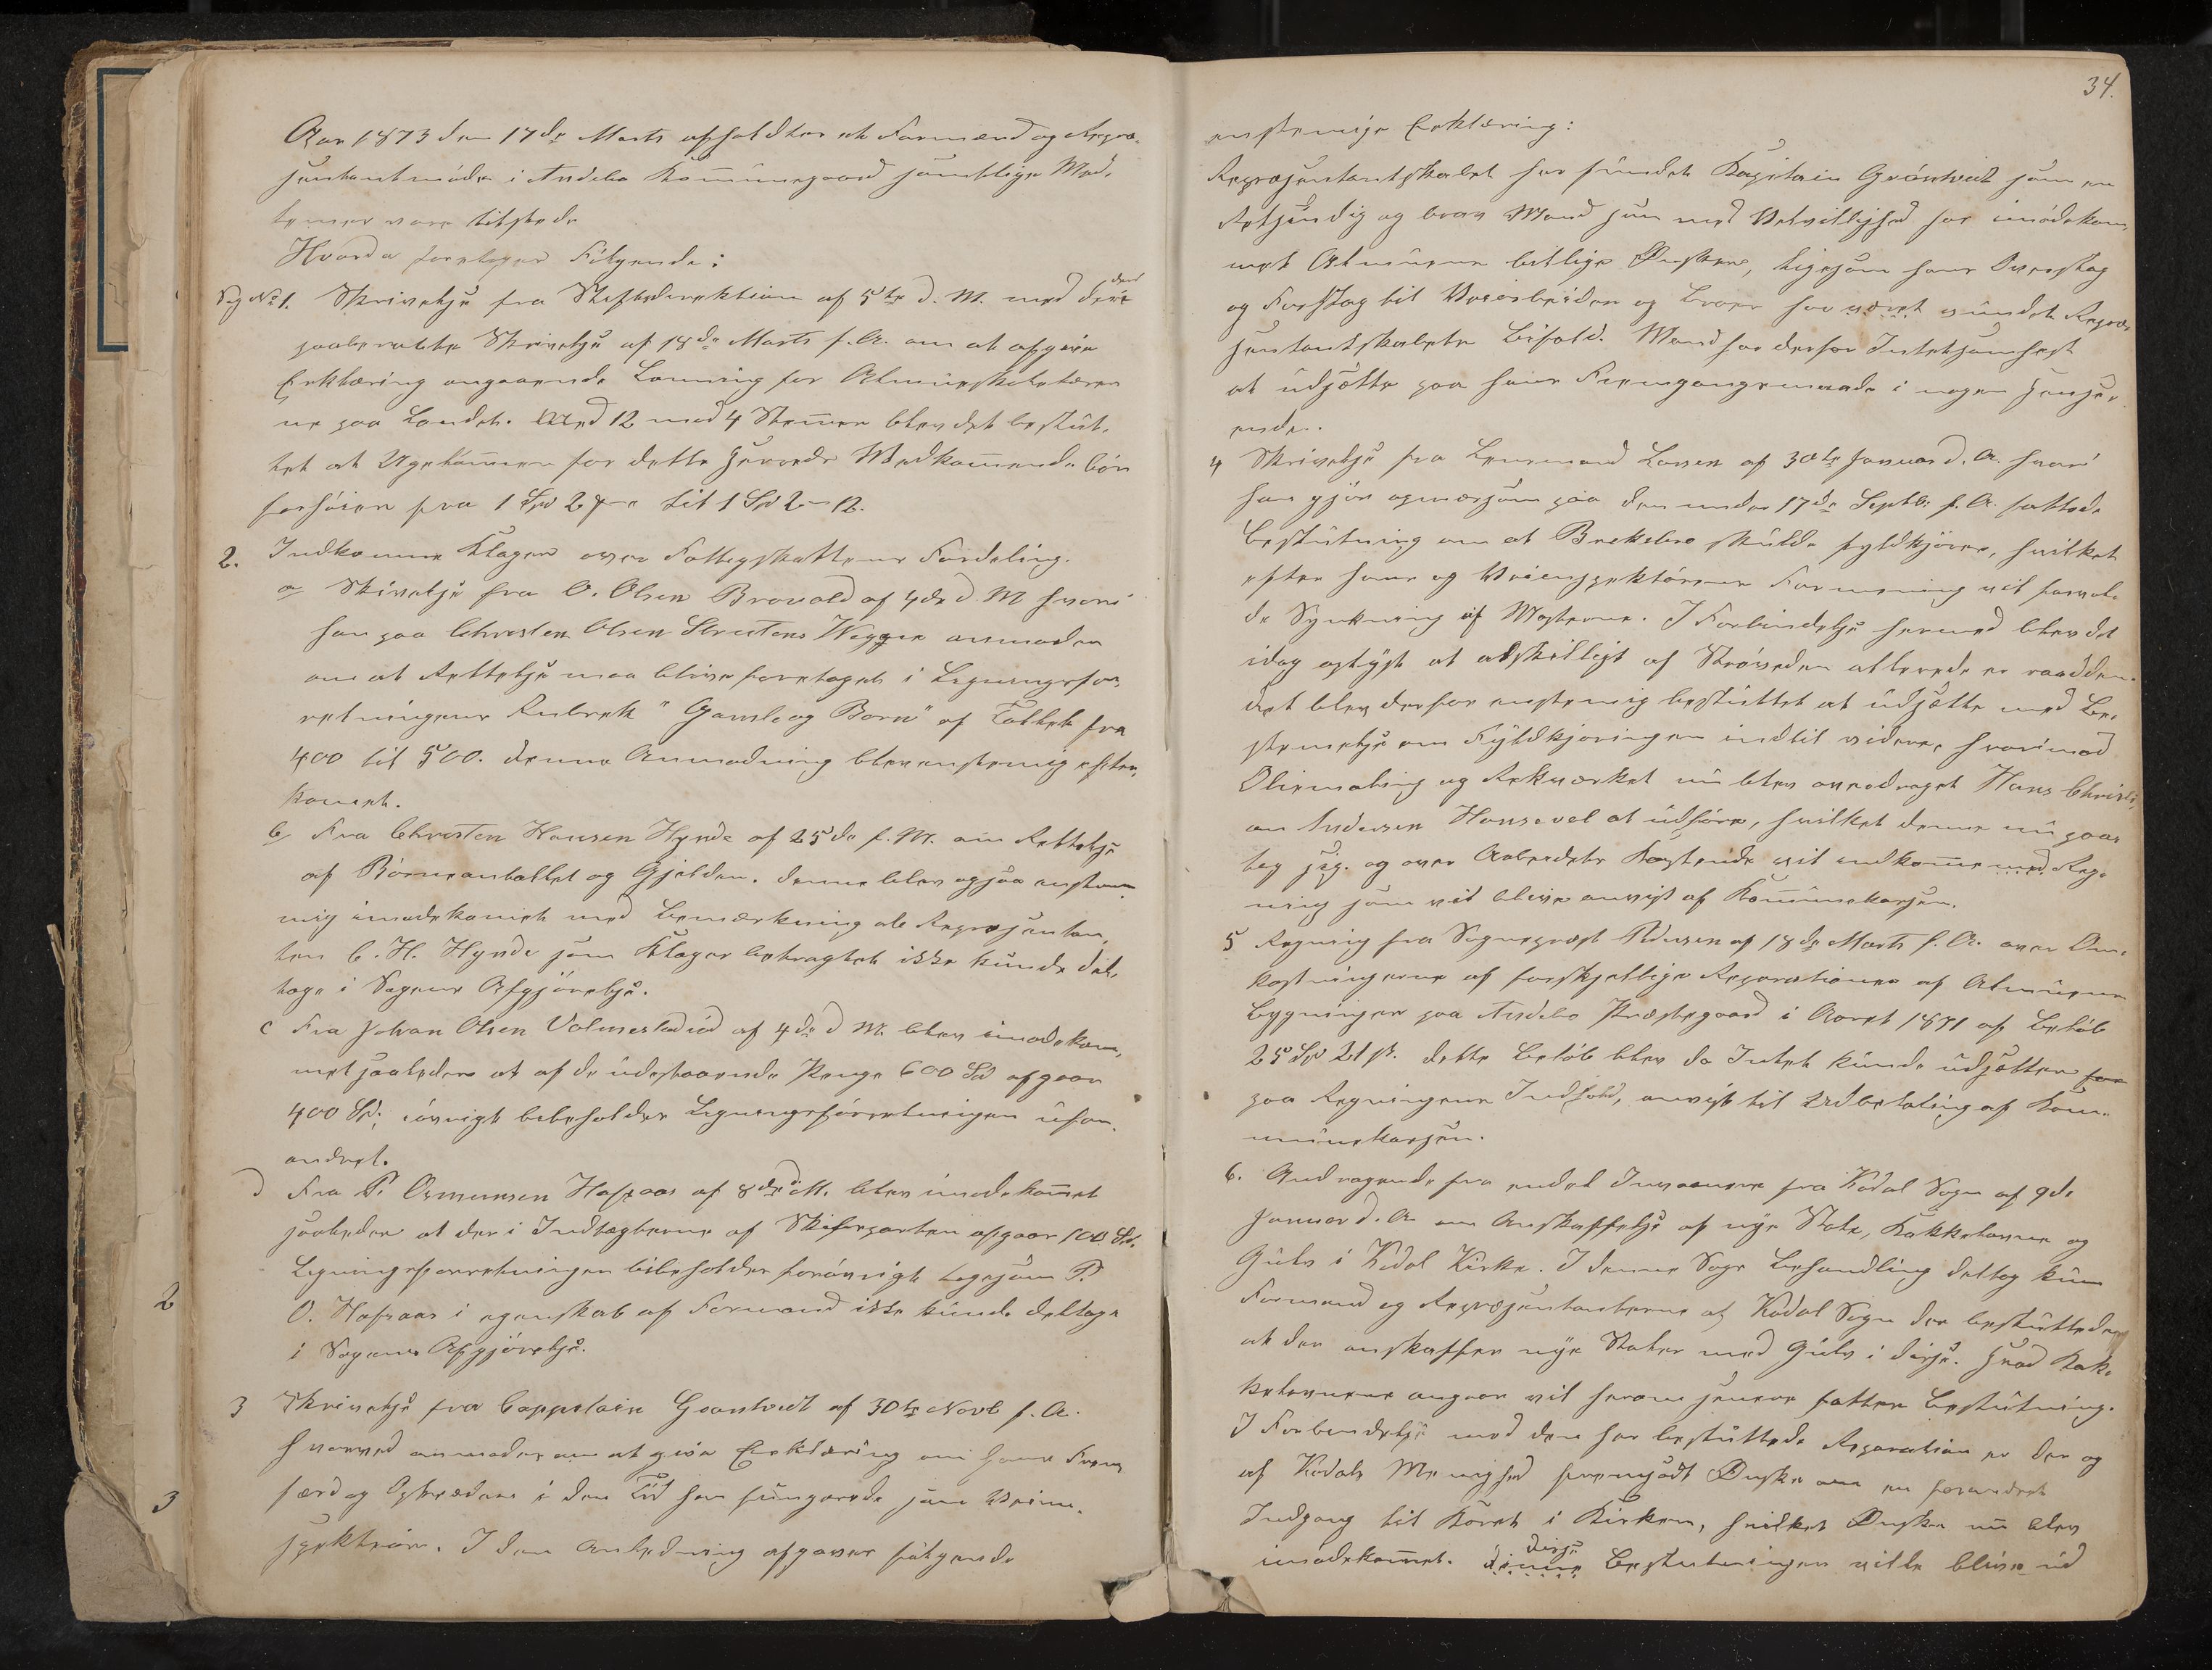 Aar 1873 den 17de Marts afholdtes et Formænd og Repræ-
sentantmöde i Andebo Kommunegaard samtlige Med-
lemer vare tilstede
Hvorda foretoges Fölgende:
Sag No 1. Skrivelse fra Stiftsdirektion af 5te d. M. med den
paaberaabte Skrivelse af 18de Marts f. A. om at afgive
Erklæring angaaende Lönning for Almueskolelærer
ne paa Landet. Med 12 mod 4 Stemer blev det beslut-
tet at Ugelönnen for dette Herreds Vedkommende bör
forhöies fra 1 Spd 2 til 1 Spd 2-12.
2. Indkomne Klager over Fattigskattens Fordeling.
a Skrivelse fra O. Olsen Bravold af 4de d. M hvori
han paa Christen Olsen Vegne anmoder
om at Rettelse maa blive foretaget i Ligningsfor-
retningens Rubrik "Gamle og Börn" af Tallet fra
400 til 500. denne Anmodning blev enstemig efter-
komet.
b Fra Christen Hansen Hynde af 25de f. M. om Rettelse
af Börneantallet og Gjelden. denne blev ogsaa enstem-
mig imödekomet med Bemærkning at Repræsentan-
ten C. H. Hynde som Klager betragtet ikke kunde del-
tage i Sagens Afgjörelse.
c Fra Johan Olsen Volmestadröd af 4de d M. blev imödekom-
met saaledes at af de udestaaende Penge 600 Spd afgaar
400 Spd; iövrigt bibeholdes Ligningsforretningen ufor-
andret.
d Fra P. Osmunsen Hafsaas af 8de d. M. blev imödekomet
saaledes at der i Indtægterne af Skibsparten afgaar 100 Spd.
Ligningsforretningen bibeholdes forövrigt ligesom P.
O. Hafsaas i egenskab af Formand ikke kunde deltage
i Sagens Afgjörelse.
3 Skrivelse fra Cappetain Grantvedt af 30te Novb f. A.
hvorved anmodes om at give Erklæring om hans Frem
færd og Optræden i den Tid han fungerede som Veiin-
spektör. I den Anledning afgaves fölgende
34.
enstemige Erklæring:
Repræsentantskabet har fundet Kapitain Gröntvedt som en
Retsindig og brav Mand som med Velvillighed har imödekom
met Almuens billige Önsker, ligesom hans Overslag
og Forslag til Veiarbeider og Broer har været vundet Repræ-
sentantskabets Bifald. Man har derfor Intetsomhelst
at udsætte paa hans Fremgangsmaade i nogen Hense-
ende.
4 Skrivelse fra Lensmand Larsen af 30te Januar d. A. hvori
han gjör opmærksom paa den under 17de Septbr f. A. fattede
Beslutning om at Brekebro skulde fyldkjöres, hvilket
efter hans og Veiinspektörens Formening vil foraar-
de Synkning af Masterne. I Forbindelse hermed blev det
idag oplyst at adskilligt af Ströveden allerede er raadden.
det blev derfor enstemig besluttet at udsætte med Be-
stemelse om Fyldkjöringen indtil videre, hvorimod
Oliemaling og Rekværket nu blev overdraget Hans Christi
an Andersen Honsevel at udföre, hvilket denne nu paa-
tog sig. og over Arbeidets Kostende vil indkomme med Reg-
ning som vil blive anvist af Kommunekassen.
5 Regning fra Sognepræst Pedersen af 18de Marts f. A. over Om-
kostningerne af forskjellige Reparationer af Almuens
Bygninger paa Andebo Præstegaard i Aaret 1871 af Belöb
25 Spd 21 s. dette Belöb blev da Intet kunde udsættes for
paa Regningens Indhold, anvist til Udbetaling af Kom-
munekassen.
6. Andragende fra endel Indvaanere fra Kodal Sogn af 9de
Januar d. A om Anskaffelse af nye Stole, Kakkelovne og
Gulv i Kodal Kirke. I denne Sags Behandling deltog kun
Formand og Repræsentanterne af Kodal Sogn der besluttede
at der anskaffes nye Stoler med Gulv i disse. Hvad Kak-
kelovnene angaar vil herom senere fattes Beslutning.
I Forbindelse med den her besluttede Reparation er der og
af Kodals Menighed fremsadt Önske om en forandret
Indgang til Koret i Kirken, hvilket Önske nu blev
imödekomet. denne disse Beslutninger vilde blive ud
2
3